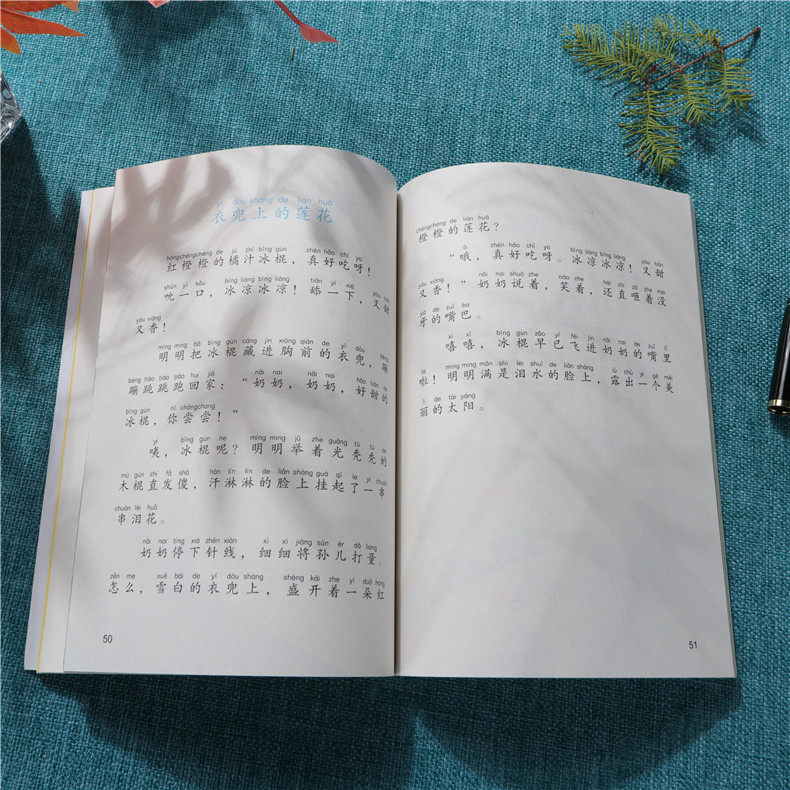 yī dōu shàng de lián huā
衣兜上的莲花
hóngchéngchéng de jú zhī bīng gùn zhēn hǎo chī ya
红橙橙的橘汁冰棍，真好吃呀！
shǔn yì kǒu bīng liáng bīng liáng tiǎn yí xià yòu tián
吮一口，冰凉冰凉！舔一下，又甜
yòu xiāng
又香！
míng míng bǎ bīng gùn cáng jìn xiōng qián de yī dōu bèng
明明把冰棍藏进胸前的衣兜，蹦
bèng tiào tiào pǎo huí jiā nǎi nai nǎi nai hǎo tián de
蹦跳跳跑回家：“奶奶，奶奶，好甜的
bīng gùn nǐ chángchang
冰棍，你尝尝！”
yí bīng gùn ne míng míng jǔ zhe guāng tū tū de
咦，冰棍呢？明明举着光秃秃的
mù gùn zhí fā shǎ hàn lín lín de liǎn shàng guà qǐ le yí chuàn
木棍直发傻，汗淋淋的脸上挂起了一串
chuàn lèi huā
串泪花。
nǎi nai tíng xià zhēn xiàn xì xì jiāng sūn ér dǎ liang
奶奶停下针线，细细将孙儿打量。
zěn me xuě bái de yī dōu shàng shèng kāi zhe yì duǒ hóng
怎么，雪白的衣兜上，盛开着一朵红
50
chéngchéng de lián huā
橙橙的莲花？
ò zhēn hǎo chī ya bīng liáng bīng liáng yòu tián
“哦，真好吃呀。冰凉冰凉！又甜
yòu xiāng nǎi nai shuō zhe xiào zhe hái zhí zā zhe méi
又香！”奶奶说着，笑着，还直咂着没
yá de zuǐ ba
牙的嘴巴。
xī xī bīng gùn zǎo yǐ fēi jìn nǎi nai de zuǐ lǐ
嘻嘻，冰棍早已飞进奶奶的嘴里
la míng míng mǎn shì lèi shuǐ de liǎn shàng lù chū yí gè měi
啦！明明满是泪水的脸上，露出一个美
lì de tài yáng
丽的太阳。
51